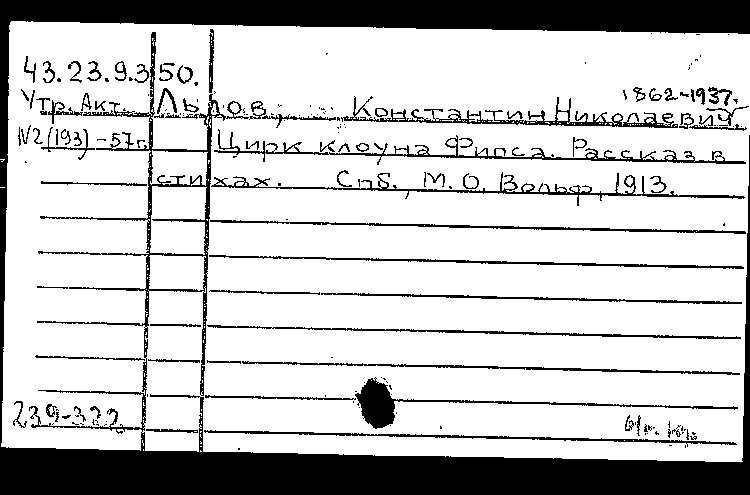 43.23.9.350.
1862-1937.
Утр. Акт. Львов, Константин Николаевич.
№2(193)-57г. Цирк клоуна Фипса. Рассказ в
стихах. Спб., М.О. Вольф, 1913.
239-322